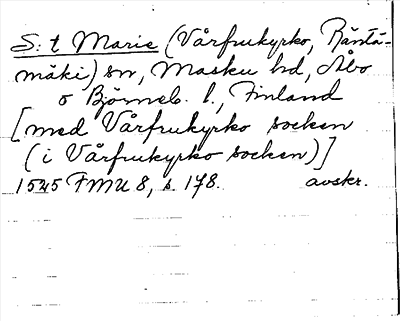 S:t Marie (Vårfrukyrko, Räntä-
mäki) sn, Masku hd, Åbo
o Björneb. l., Finland
[med Vårfrukyrko socken
(i Vårfrukyrko socken)]
1545 FMU 8, s. 178. avskr.